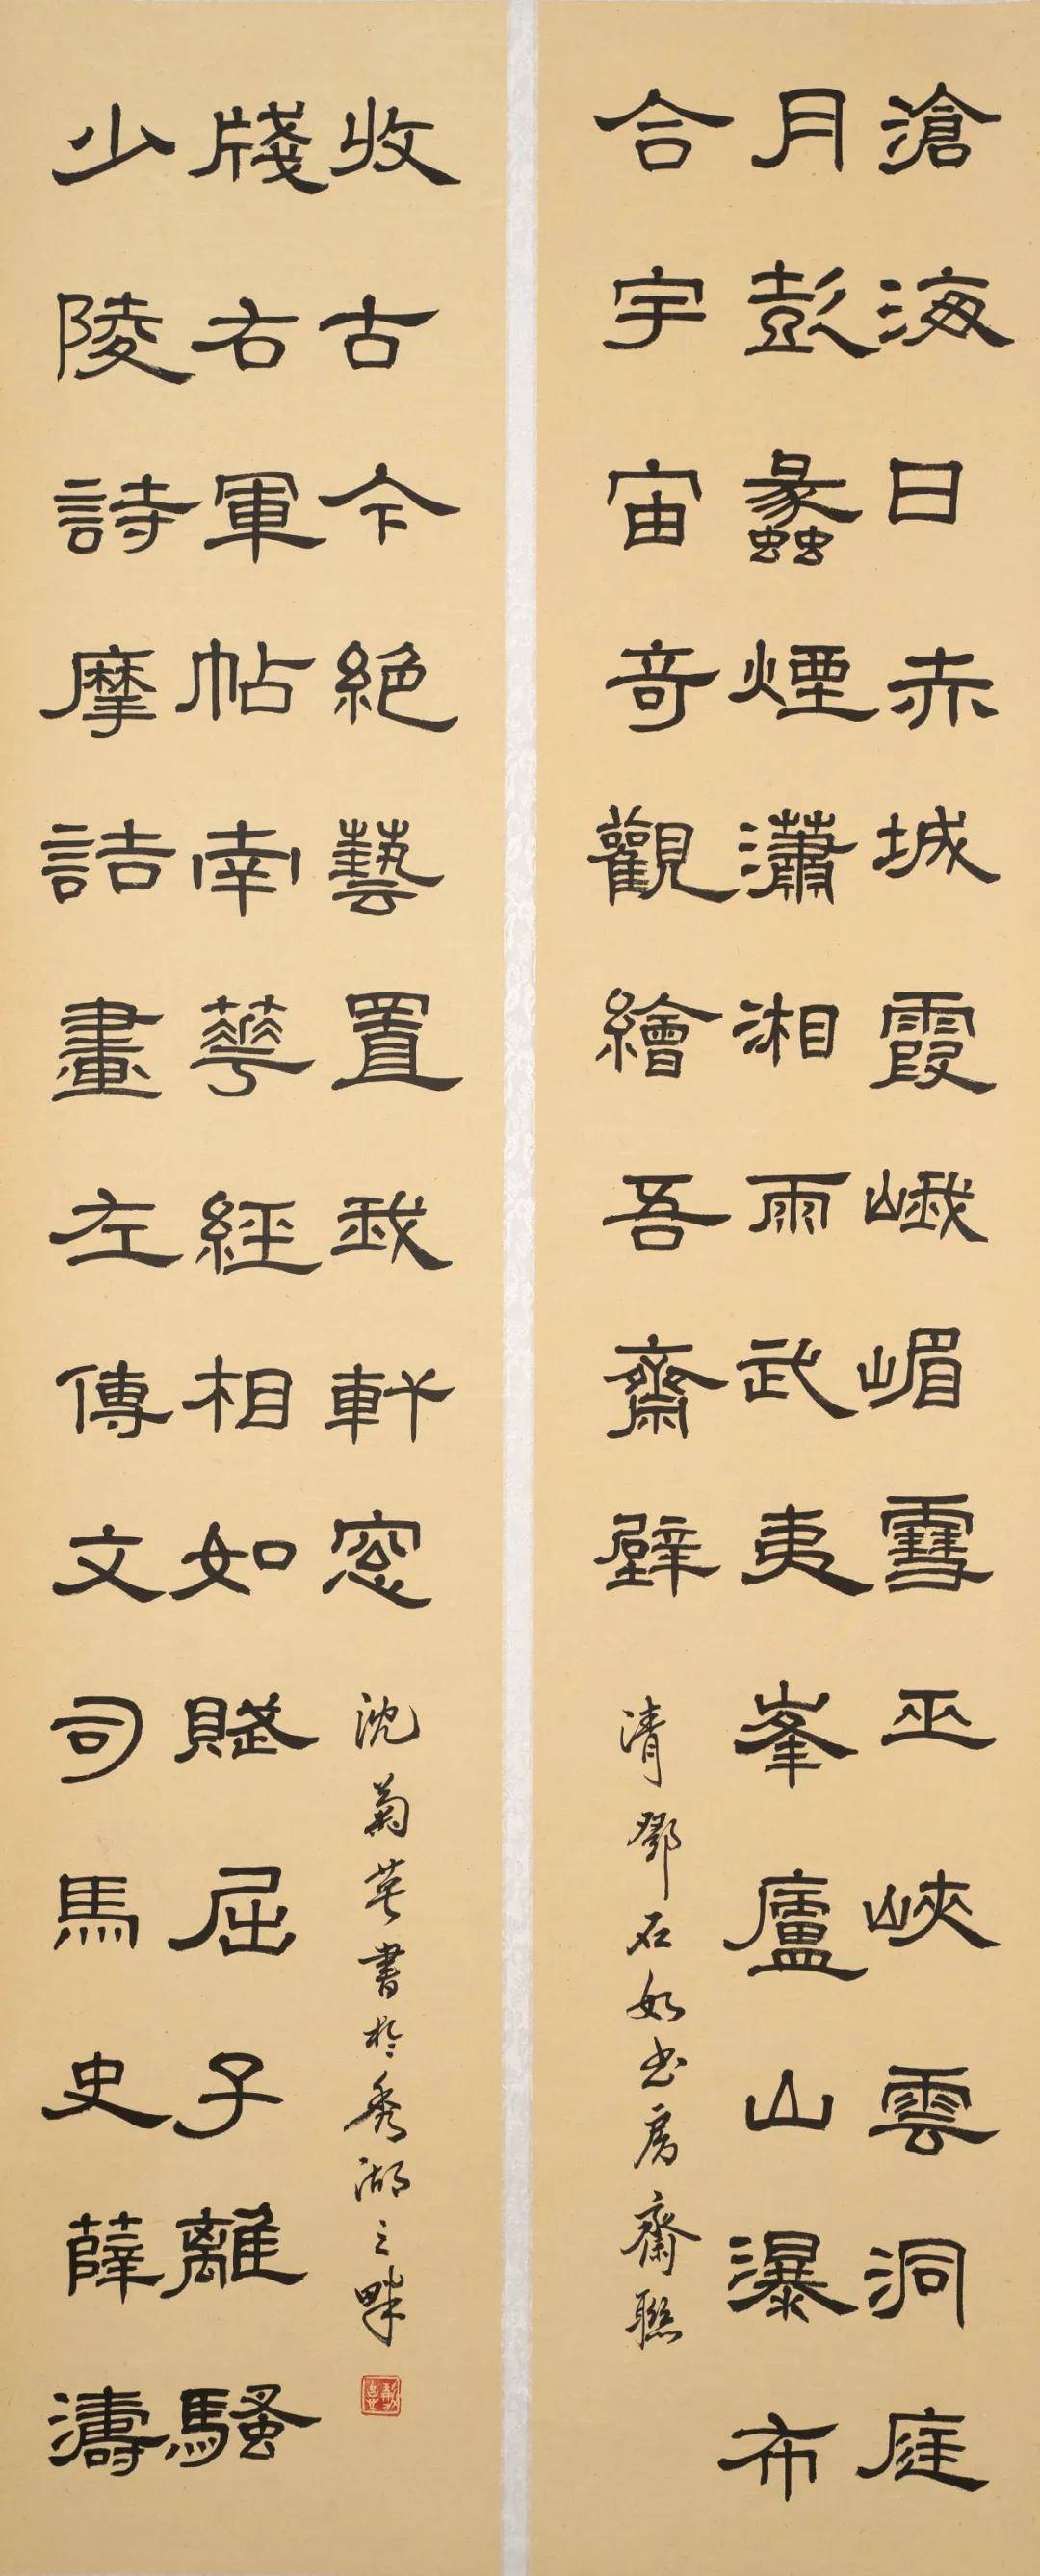 滄海日赤城霞峨嵋雪巫峽雲洞庭
月彭蠡煙瀟湘雨武夷峯廬山瀑布
合宇宙奇觀繪吾齋壁
清鄧石如书房齋聯
少陵詩摩詰畫左傳文司馬史薛濤
牋右軍帖南華經相如賦屈子離騷
收古今絕藝置我軒窓
沈菊英書於秀湖之畔